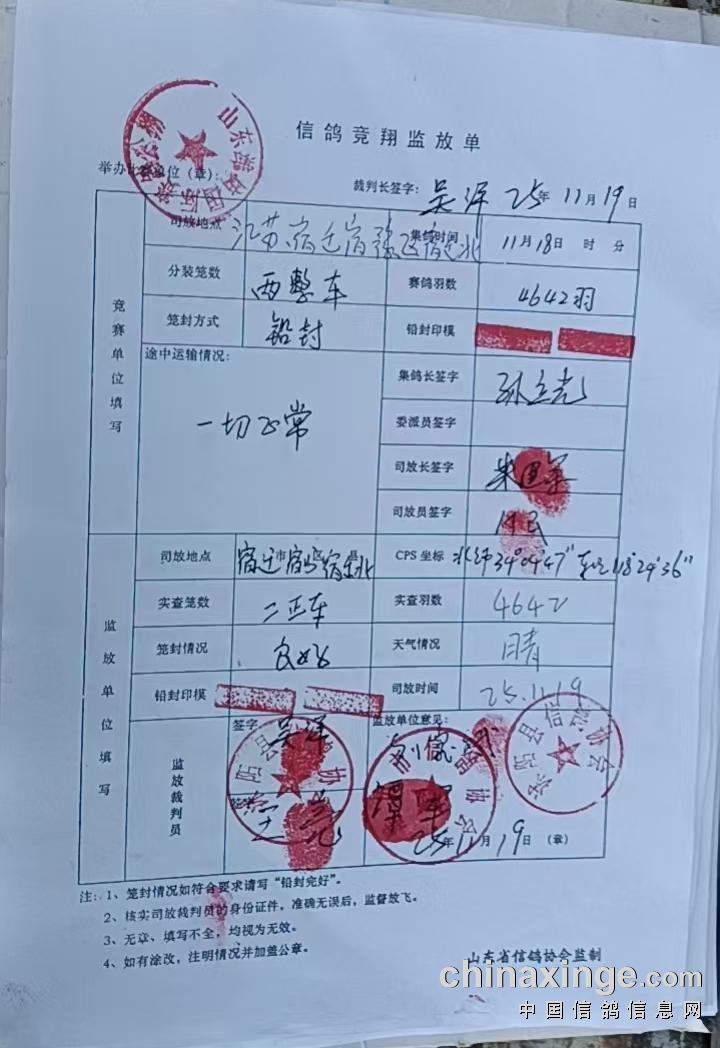 信鸽竞翔监放单
举办比赛单位（章）：
裁判长签字： 吴洋 25年11月19日
竞赛单位填写
司放地点 江苏宿迁宿 集鸽时间 11月18日 时 分
分装笼数 两整车 赛鸽羽数 4642羽
笼封方式 铅封 铅封印模
途中运输情况： 一切正常
集鸽长签字
委派员签字
司放长签字
司放员签字
监放单位填写
司放地点 宿迁市宿 北 CPS 坐标 北纬34°04'47" 东 118°24'36"
实查笼数 二正车 实查羽数 4642
笼封情况 良好 天气情况 晴
铅封印模 司放时间 25.11.19
监放裁判员
签字 吴洋
监放单位意见：
25年11月19日（章）
山东 国际赛鸽
县信鸽协会
注：1、笼封情况如符合要求请写“铅封完好”。
2、核实司放裁判员的身份证件，准确无误后，监督放飞。
3、无章、填写不全，均视为无效。
4、如有涂改，注明情况并加盖公章。
山东省信鸽协会监制
chinaxinge.com
中国信鸽信息网